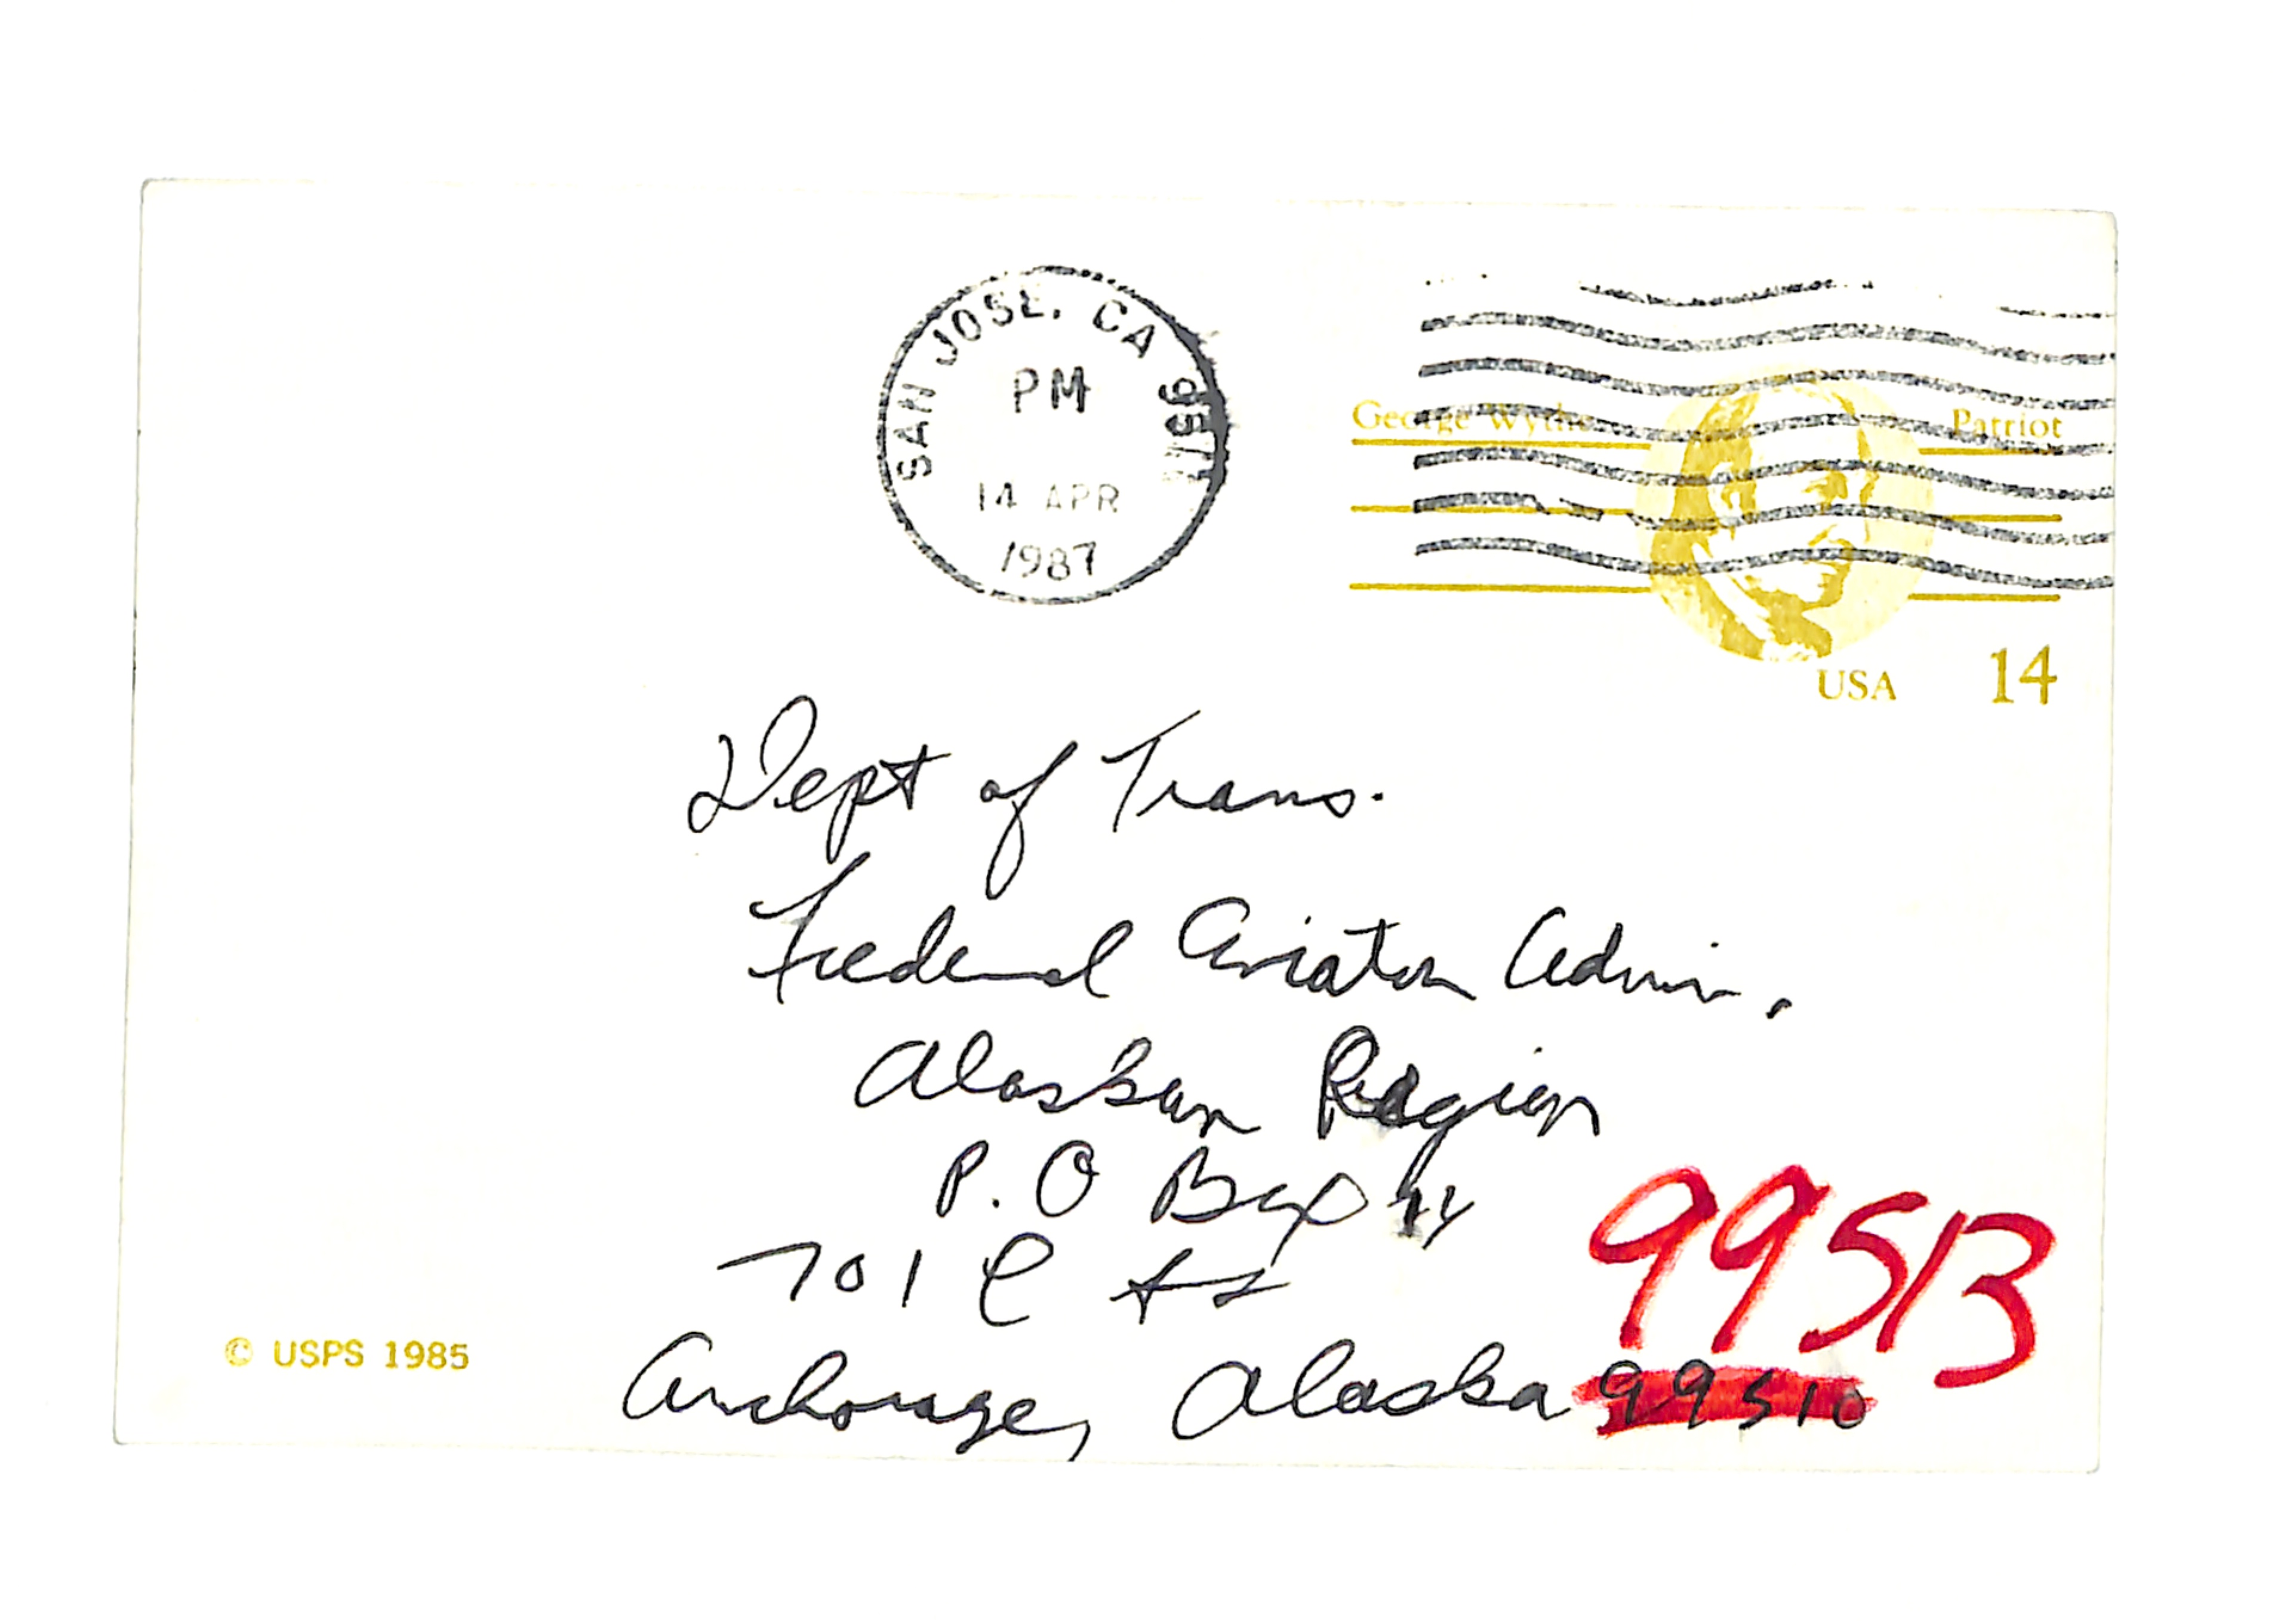 SAN JOSE, CA
PM
14 APR
1987
George Wythe Patriot
USA 14
Dept of Trans.
Federal Aviation Admin.
Alaskan Region
P. O Box 14
701 C St
99513
Anchorage, Alaska 99510
© USPS 1985